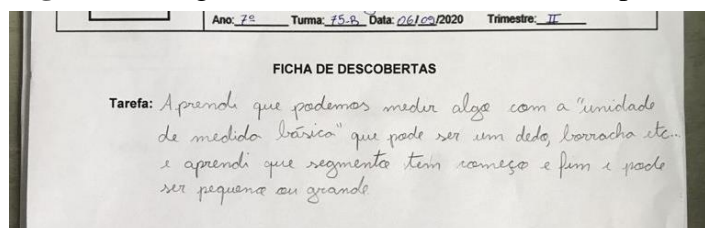 Ano: 7º Turma: 75-B Data: 06/09/2020 Trimestre: II
FICHA DE DESCOBERTAS
Tarefa: Aprendi que podemos medir algo com a "unidade
de medida básica" que pode ser um dedo, borracha etc...
e aprendi que segmento tem começo e fim e pode
ser pequeno ou grande